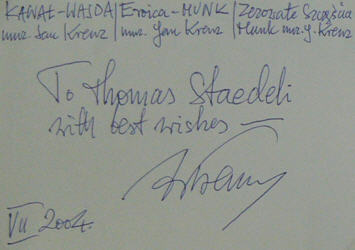 KANAŁ-WAJDA | Eroica-MUNK | Zezowate Szczęście
muz. Jan Krenz | muz. Jan Krenz | Munk muz. J. Krenz
To Thomas Staedeli
with best wishes —
VII 2004.